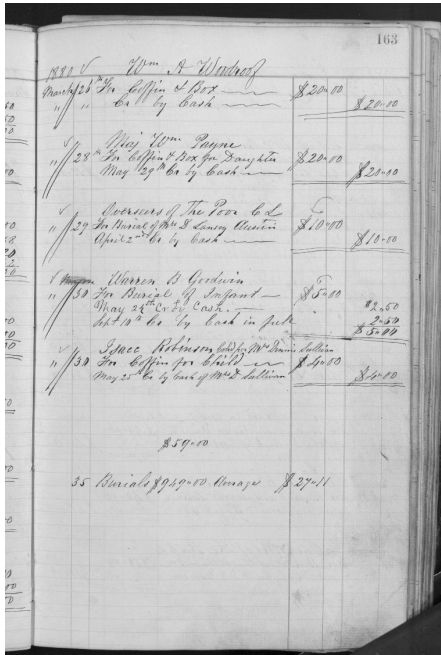 163
1880 ✓ Wm A Woodroof
March // 26th For Coffin & Box $20.00
" // " Cr by Cash $20.00
✓ Maj Wm Payne
" // 28th For Coffin & Box for Daughter $20.00
May 29th Cr by Cash $20.00
✓ Overseers of The Poor C L
" // 29 For Burial of Mrs D Lansey Austin $10.00
April 2nd Cr by Cash $10.00
✓ Warren B. Goodwin
" // 30 For Burial of Infant $5.00
May 24th Cr by Cash " $2.50
Sept 18th Cr by Cash in full " 2.50
$5.00
✓ Isacc Robinson Cold for Mrs Dennis Sullivan
" // 30 For Coffin for Child $4.00
May 25th Cr by Cash of Mrs D. Sullivan $4.00
$59.00
35 Burials $949.00 Average $27.11